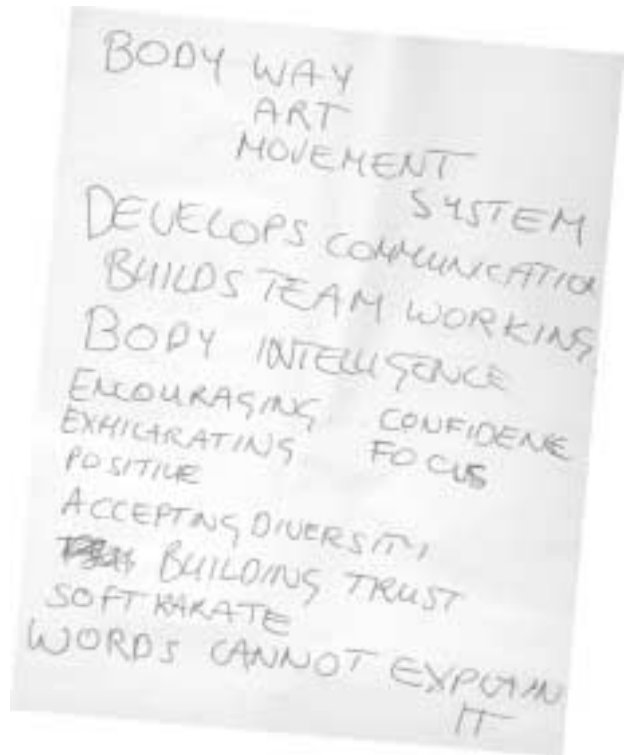 BODY WAY
ART
MOVEMENT
SYSTEM
DEVELOPS COMMUNICATION
BUILDS TEAM WORKING
BODY INTELLIGENCE
ENCOURAGING CONFIDENE
EXHILARATING FOCUS
POSITIVE
ACCEPTING DIVERSITY
BUILDING TRUST
SOFT KARATE
WORDS CANNOT EXPLAIN
IT